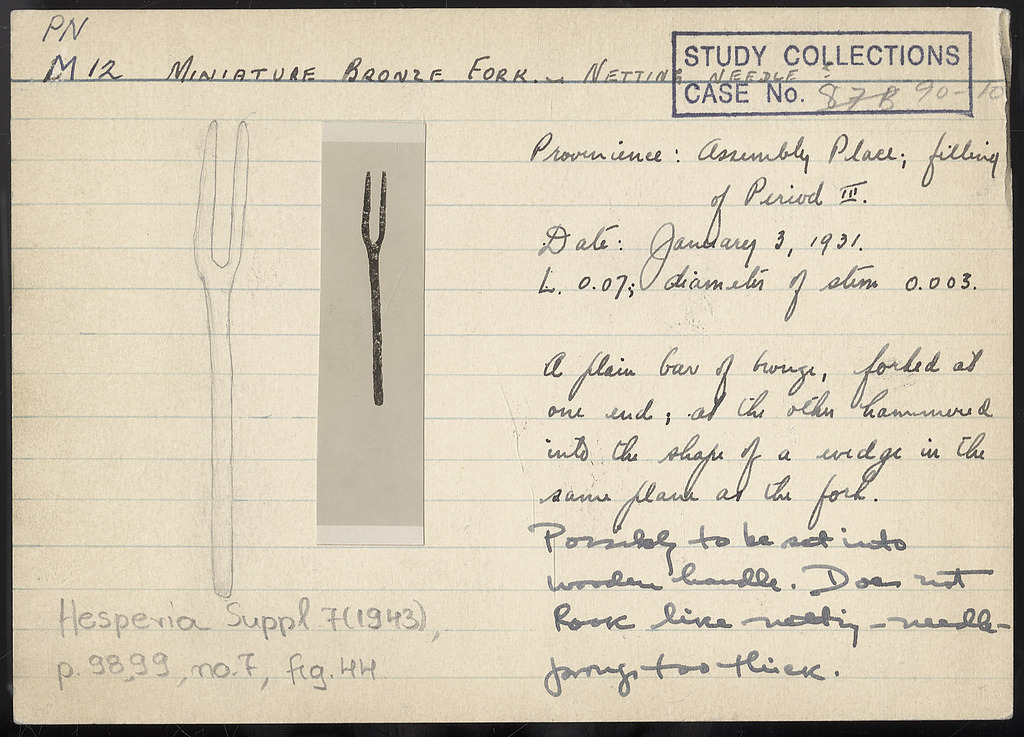 PN
M 12 MINIATURE BRONZE FORK. NETTING NEEDLE?
STUDY COLLECTIONS
CASE No. 87B 90-10
Provenience: Assembly Place; filling
of Period III.
Date: January 3, 1931.
L. 0.07; diameter of stem 0.003.
A plain bar of bronze, forked at
one end; at the other hammered
into the shape of a wedge in the
same plane as the fork.
Possibly to be set into
wooden handle. Does not
look like netting-needle-
prongs too thick.
Hesperia Suppl 7(1943),
p. 98,99, no.7, fig. 44